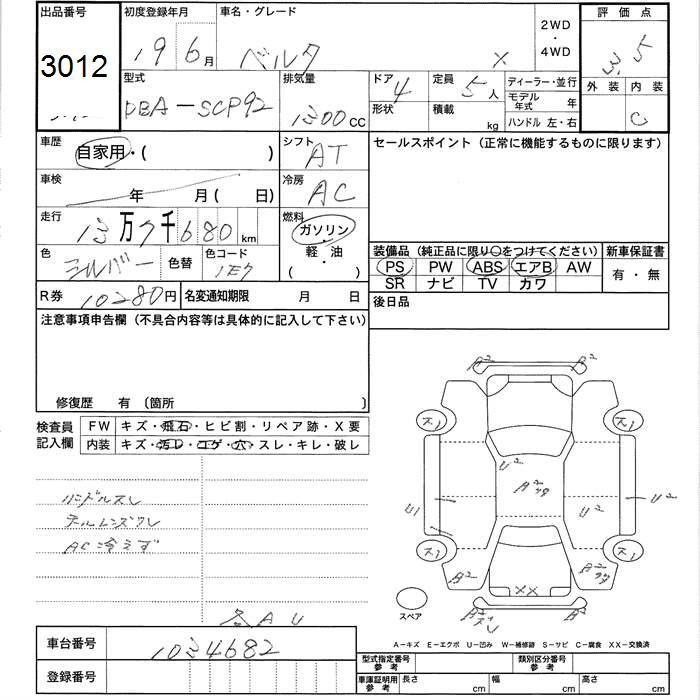 出品番号 初度登録年月 車名・グレード 2WD・4WD 評価点
3012 19 6月 ベルタ X 3.5
外装 内装
C
型式 排気量 ドア 定員 ディーラー・並行
DBA-SCP92 1300CC 4 5人 モデル年式 年
形状 積載 kg ハンドル 左・右
車歴 自家用・( ) シフト AT セールスポイント(正常に機能するものに限ります)
車検 年 月( 日) 冷房 AC
走行 13万7千680km 燃料 ガソリン・軽・油 ( )
色 シルバー 色替 色コード 1E7
装備品(純正品に限り○をつけてください) 新車保証書
PS PW ABS エアB AW 有・無
SR ナビ TV カワ
R券 10280円 名変通知期限 月 日 後日品
注意事項申告欄(不具合内容等は具体的に記入して下さい)
修復歴 有 〔箇所 〕
検査員記入欄 FW キズ・飛石・ヒビ割・リペア跡・X要
内装 キズ・汚レ・コゲ・穴・スレ・キレ・破レ
ハンドルスレ
テールレンズワレ
AC冷えず
各AU
A2 A2
ス1 ス1
U2
A2
U1 U2 U2
ス1 ス1
A2 A2
XX
スペア
A2 A2
A-キズ E-エクボ U-凹み W-補修跡 S-サビ C-腐食 XX-交換済
車台番号 1034682 型式指定番号 参考 類別区分番号 参考
登録番号 車庫証明用 参考 長さ cm 幅 cm 高さ cm